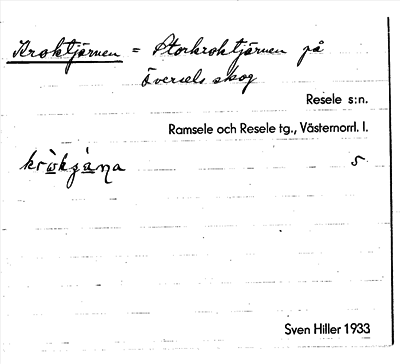 Kroktjärnen = Storkroktjärnen på
Översels skog
Resele s:n.
Ramsele och Resele tg., Västernorrl. l.
5
Sven Hiller 1933